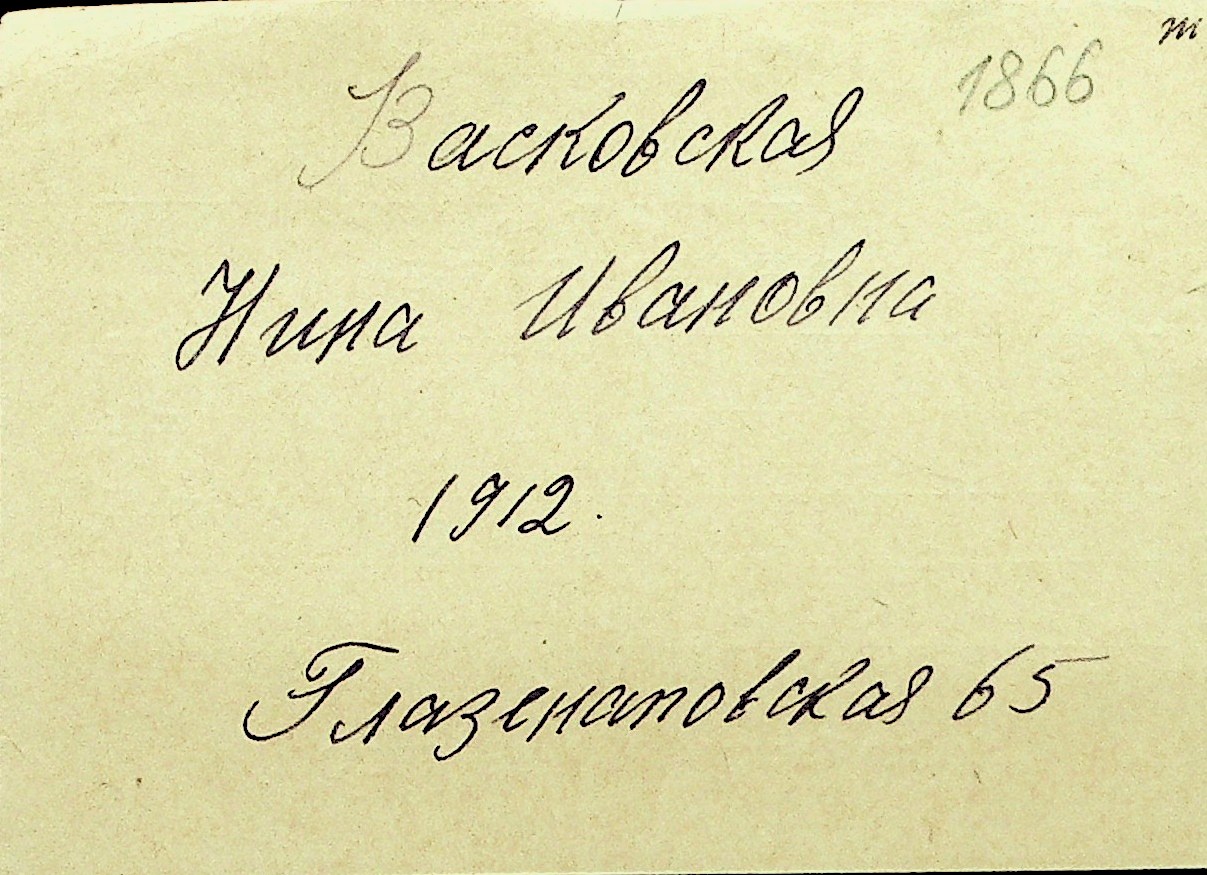 т
1866
Васковская
Нина Ивановна
1912.
Глазенаповская 65